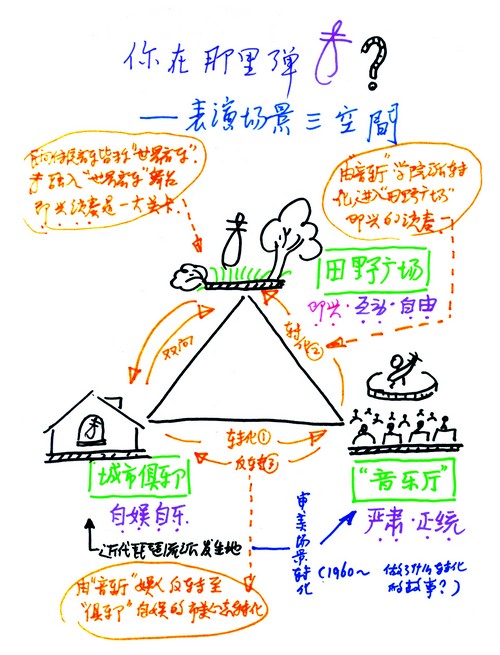 你在那里弹
?
——表演场景三空間
民间传统音乐皆称"世界音乐".
李融入"世界音乐"舞台
即兴演奏是一大关卡.
由"音乐厅"学院派转
化进入"田野广场"
即兴的演奏
田野广场
即兴·互动·自由
双向
转化②
转化①
反转③
城市俱乐部
自娱自乐
近代琵琶流派发生地
"音乐厅"
严肃·正统
审美场景转化
(1960~ 做了什么转化
的故事?)
由"音乐厅"娱人反转至
"俱乐部"自娱的
转化